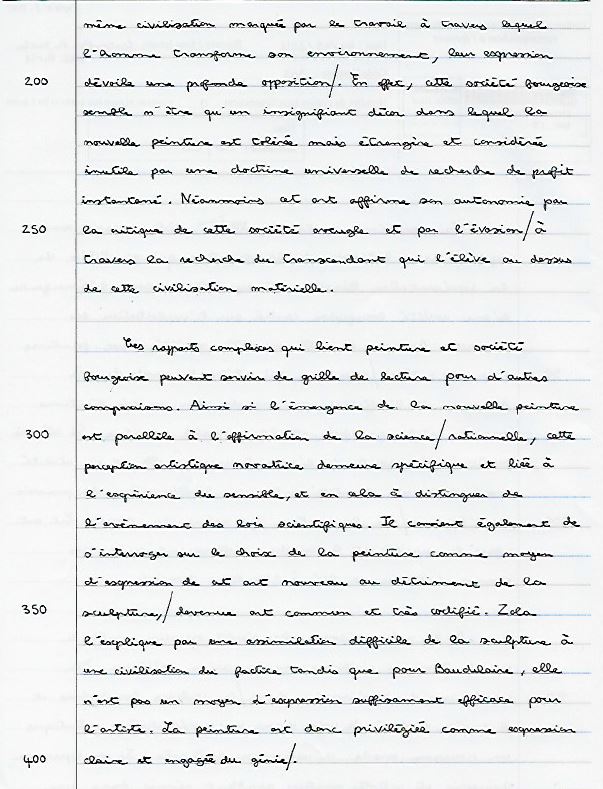 même civilisation marquée par le travail à travers lequel
l'homme transforme son environnement, leur expression
200 dévoile une profonde opposition/. En effet, cette société bourgeoise
semble n'être qu'un insignifiant décor dans lequel la
nouvelle peinture est tolérée mais étrangère et considérée
inutile par une doctrine universelle de recherche de profit
instantané. Néanmoins cet art affirme son autonomie par
250 la critique de cette société aveugle et par l'évasion/à
travers la recherche du transcendant qui l'élève au dessus
de cette civilisation matérielle.
Les rapports complexes qui lient peinture et société
bourgeoise peuvent servir de grille de lecture pour d'autres
comparaisons. Ainsi si l'émergence de la nouvelle peinture
300 est parallèle à l'affirmation de la science/rationnelle, cette
perception artistique novatrice demeure spécifique et liée à
l'expérience du sensible, et en cela à distinguer de
l'avènement des lois scientifiques. Il convient également de
s'interroger sur le choix de la peinture comme moyen
d'expression de cet art nouveau au détriment de la
350 sculpture,/devenue art commun et très codifié. Zola
l'explique par une assimilation difficile de la sculpture à
une civilisation du factice tandis que pour Baudelaire, elle
n'est pas un moyen d'expression suffisament efficace pour
l'artiste. La peinture est donc privilégiée comme expression
400 claire et engagée du génie/.